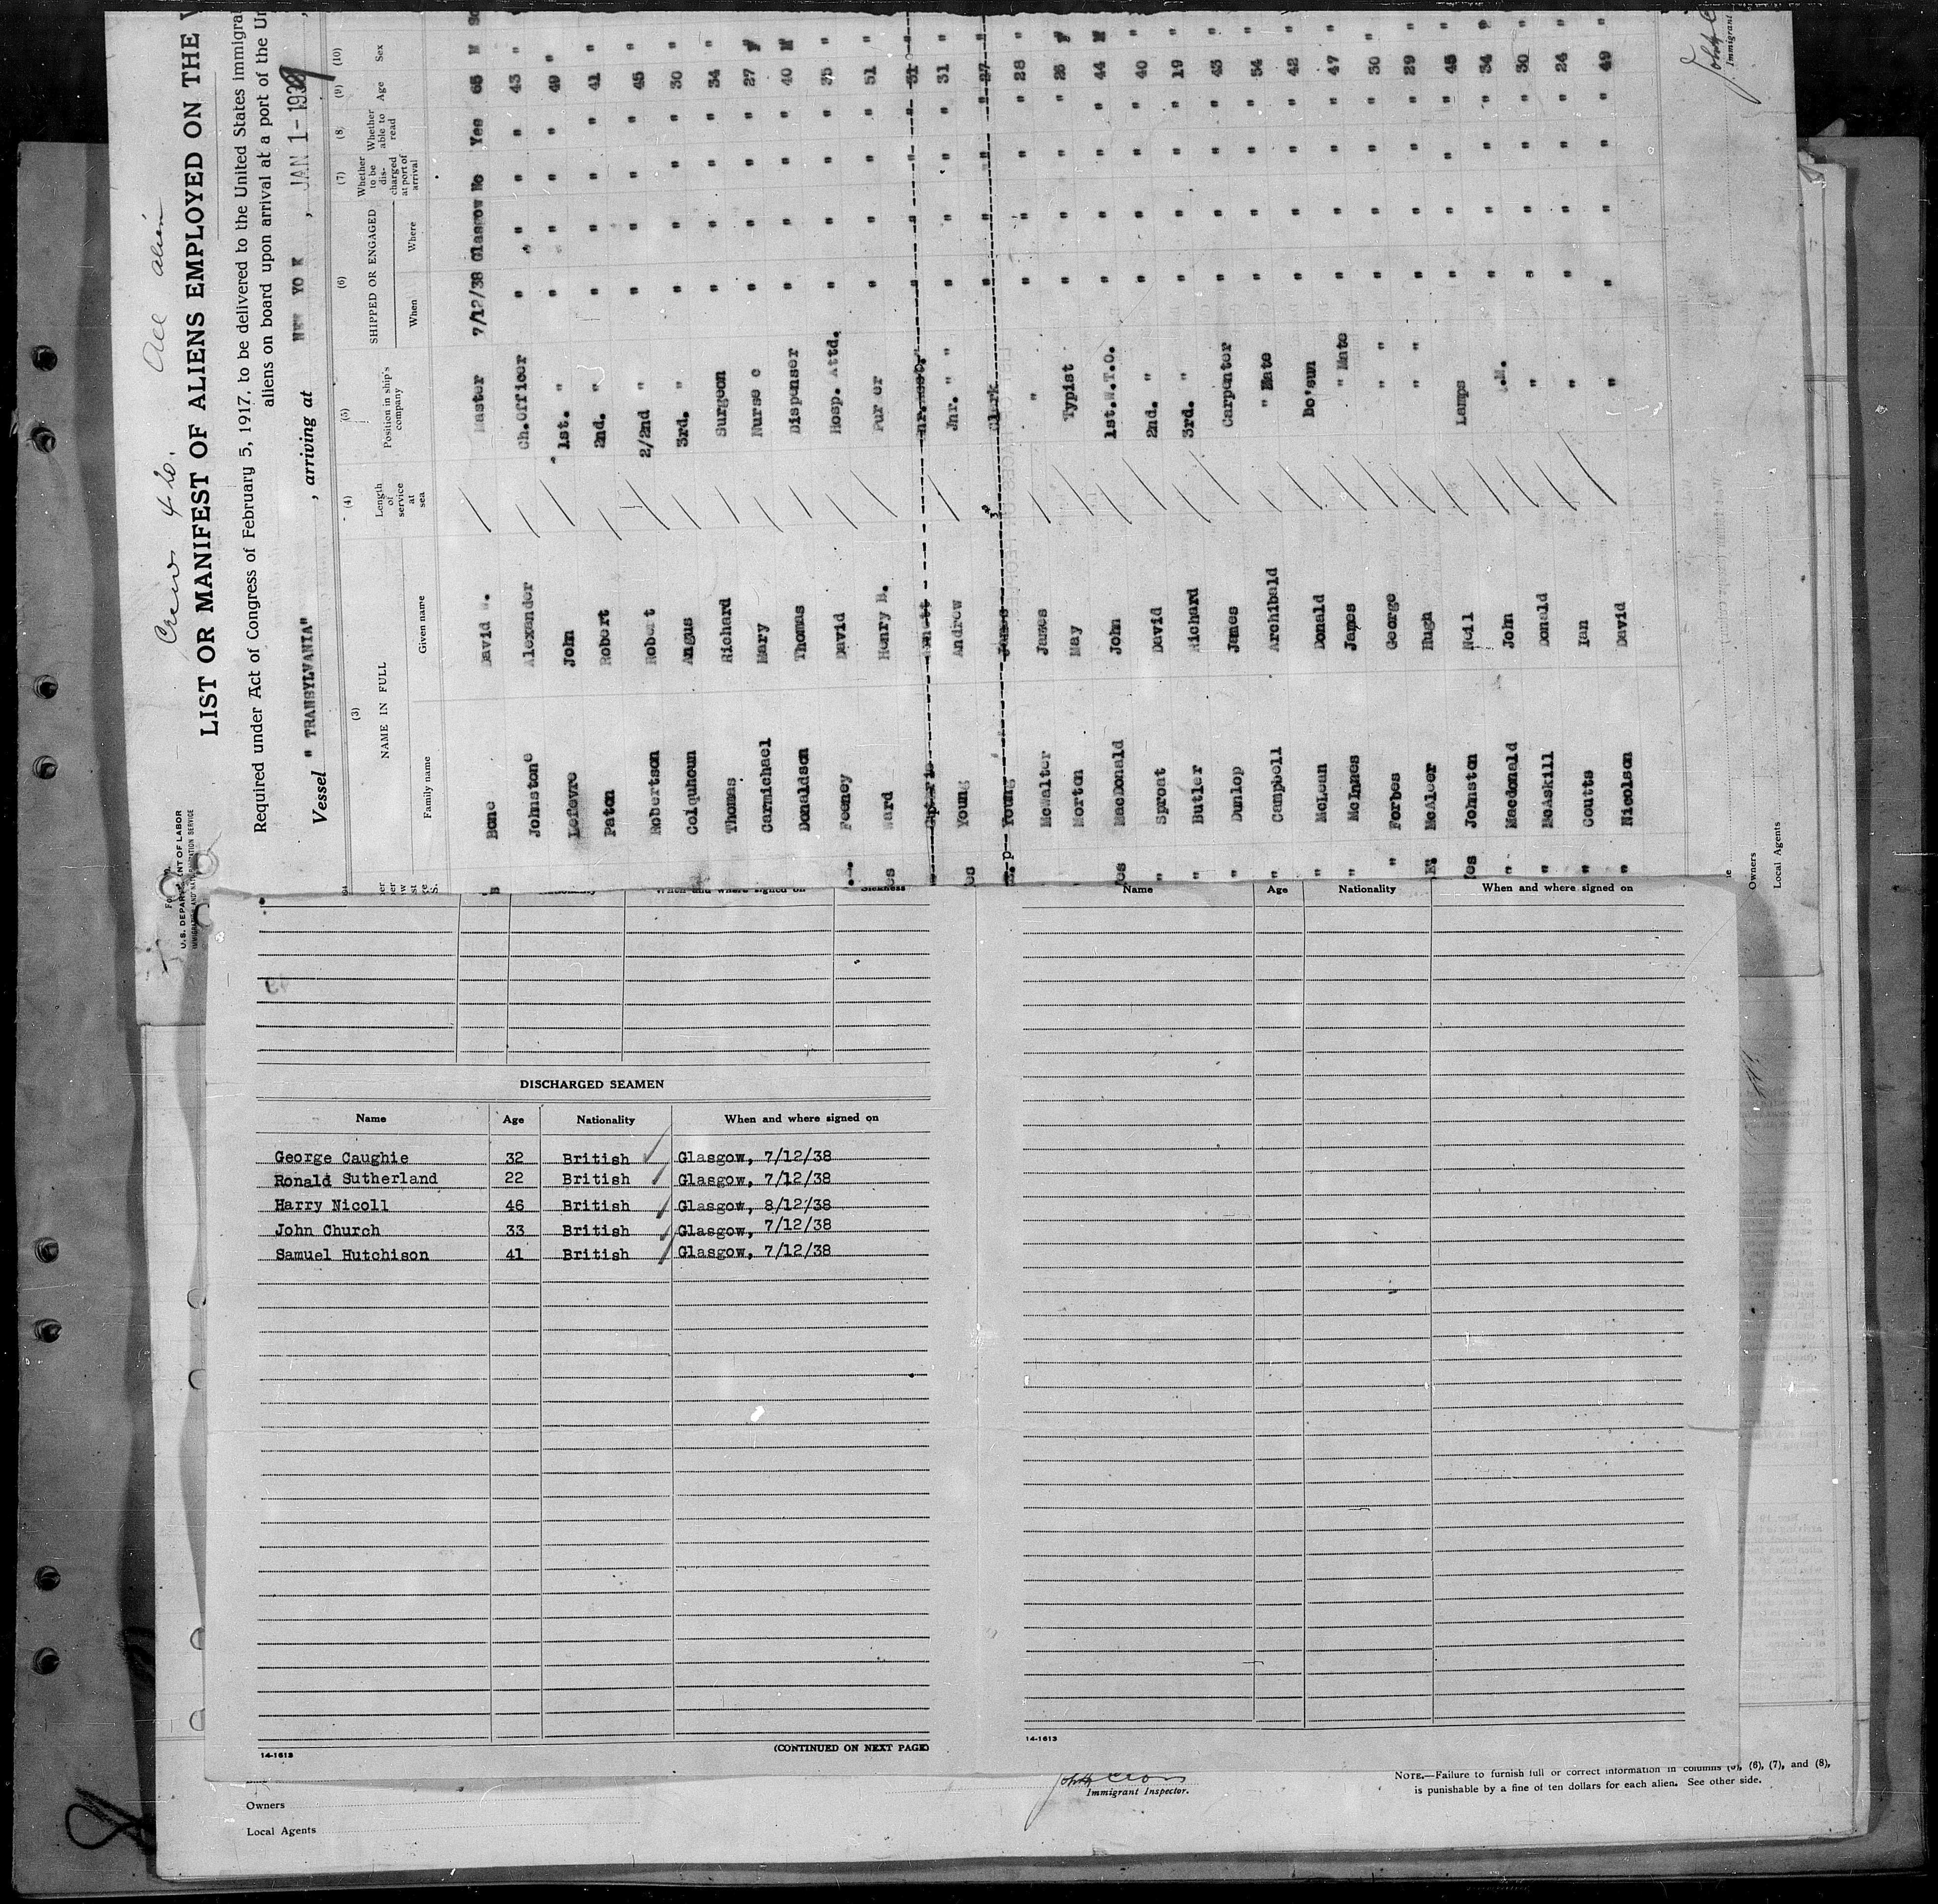 Crew 4 lb. All alien
U.S. DEPARTMENT OF LABOR
IMMIGRATION AND NATURALIZATION SERVICE
LIST OR MANIFEST OF ALIENS EMPLOYED ON THE
Required under Act of Congress of February 5, 1917, to be delivered to the United States Immigra
aliens on board upon arrival at a port of the Un
Vessel " TRANSYLVANIA" , arriving at NEW YO K , JAN 1 - 1939
(3) (4) (5) (6) (7) (8) (9) (10)
NAME IN FULL Length of service at sea Position in ship's company SHIPPED OR ENGAGED Whether to be discharged at port of arrival Whether able to read Age Sex
Family name Given name When Where
Bone David W. Master 7/12/38 Glasgow No Yes 65 M
Johnstone Alexander Ch.Officer " " " " 43 "
Lefevre John 1st. " " " " " 49 "
Paton Robert 2nd. " " " " " 41 "
Robertson Robert 2/2nd " " " " " 45 "
Colquhoun Angus 3rd. " " " " " 30 "
Thomas Richard Surgeon " " " " 34 "
Carmichael Mary Nurse " " " " 27 F
Donaldson Thomas Dispenser " " " " 40 M
Feeney David Hosp. Attd. " " " " 35 "
Ward Henry B. Pur er " " " " 51 "
" " " " 31 "
Young Andrew Jnr. " " " " " " 31 "
Young James Clerk " " " " 27 "
McWalter James " " " " " 28 "
Morton May Typist " " " " 26 F
MacDonald John 1st.W.T.O. " " " " 44 M
" Sproat David 2nd. " " " " " 40 "
" Butler Richard 3rd. " " " " " 19 "
" Dunlop James Carpenter " " " " 43 "
" Campbell Archibald " Mate " " " " 54 "
" McLean Donald Bo'sun " " " " 42 "
" McInnes James " Mate " " " " 47 "
" Forbes George " " " " " " 30 "
McAleer Hugh " " " " " " 29 "
Johnston Neil Lamps " " " " 45 "
" Macdonald John .M. " " " " 34 "
" McAskill Donald " " " " " 30 "
" Coutts Ian " " " " " 24 "
" Nicolson David " " " " " 49 "
Immigrant
Owners
Local Agents
Nationality When and where signed on Sickness
Name Age Nationality When and where signed on
DISCHARGED SEAMEN
Name Age Nationality When and where signed on
George Caughie 32 British Glasgow, 7/12/38
Ronald Sutherland 22 British Glasgow, 7/12/38
Harry Nicoll 46 British Glasgow, 8/12/38
John Church 33 British Glasgow, 7/12/38
Samuel Hutchison 41 British Glasgow, 7/12/38
14-1613 (CONTINUED ON NEXT PAGE)
14-1613
Owners
Local Agents
Immigrant Inspector.
NOTE.—Failure to furnish full or correct information in columns (5), (6), (7), and (8),
is punishable by a fine of ten dollars for each alien. See other side.